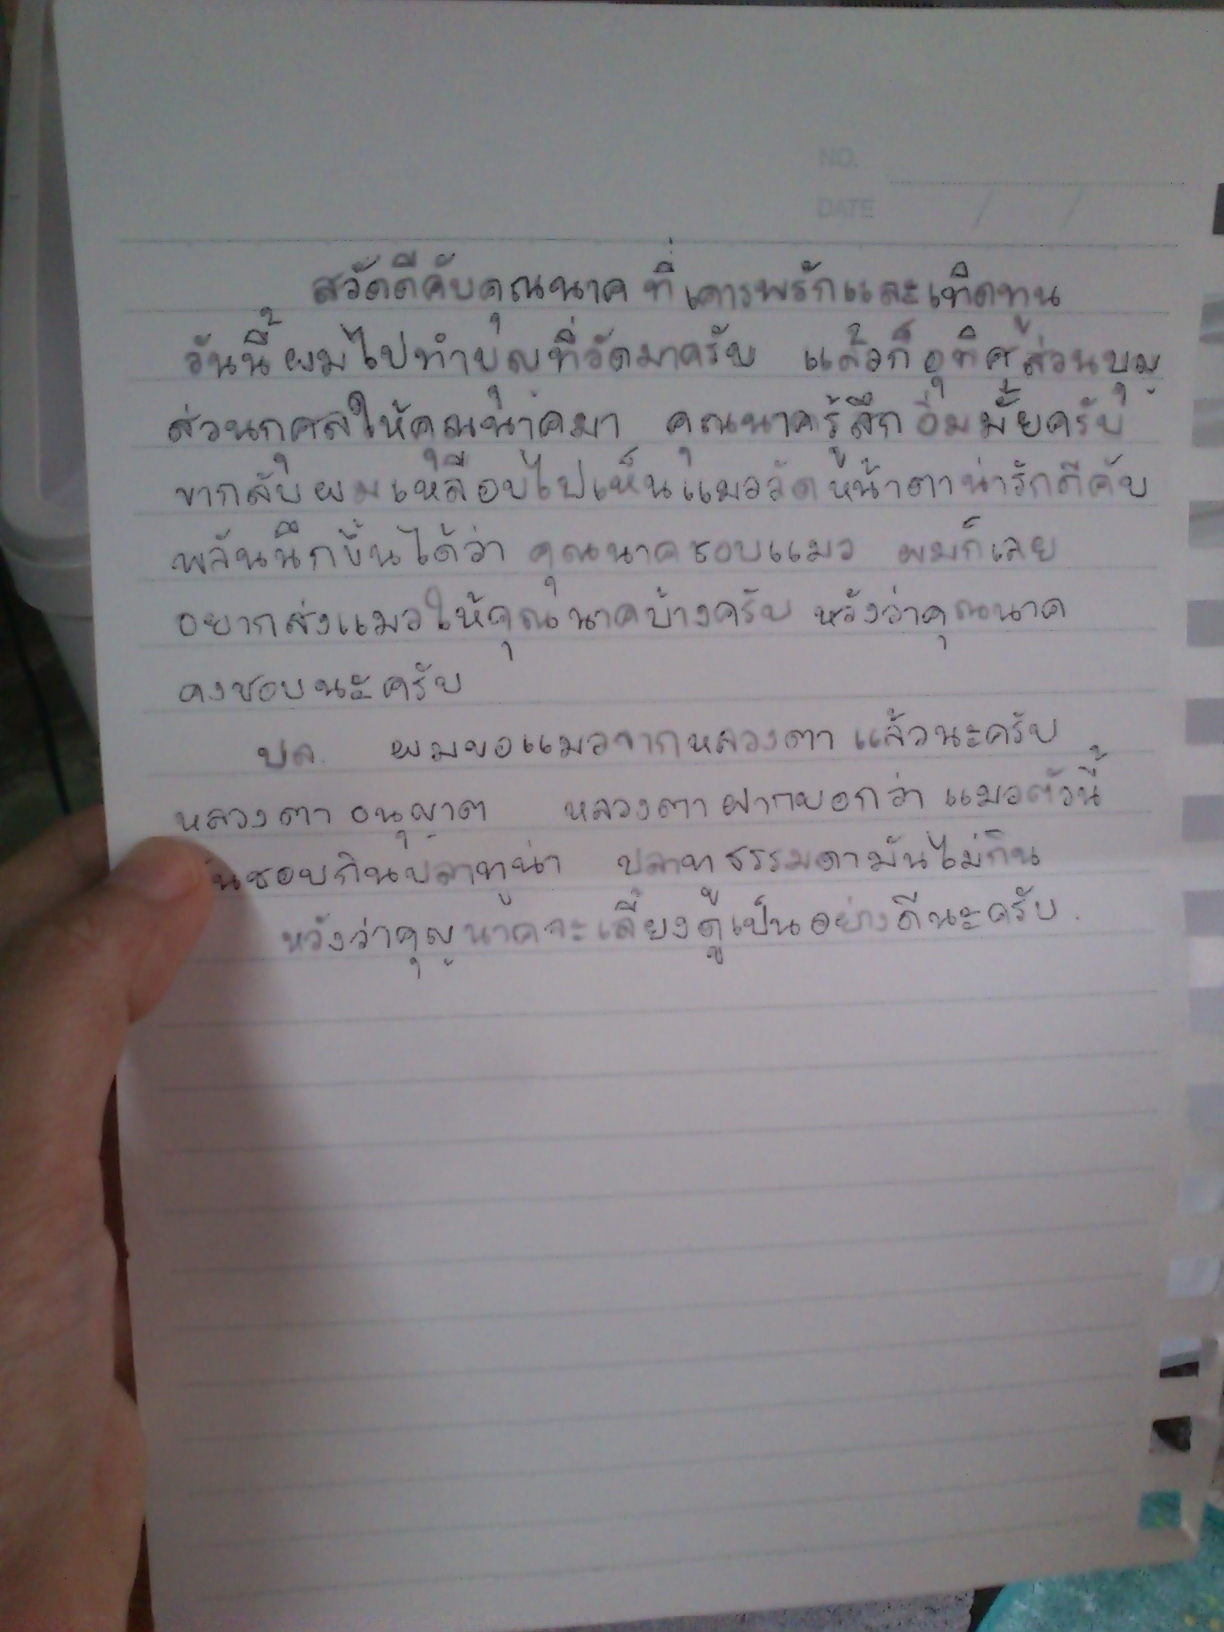 NO.
DATE / /
สวัดดีคับคุณนาคที่เคารพรักและเทิดทูน
วันนี้ผมไปทำบุญที่วัดมาครับ แล้วก็อุทิศส่วนบุญ
ส่วนกุศลให้คุณนาคมา คุณนาครู้สึกอิ่มมั้ยครับ
ขากลับผมเหลือบไปเห็นแมววัดหน้าตาน่ารักดีคับ
พลันนึกขึ้นได้ว่า คุณนาคชอบแมว ผมก็เลย
อยากส่งแมวให้คุณนาคบ้างครับ หวังว่าคุณนาค
คงชอบนะครับ
ปล. ผมขอแมวจากหลวงตา แล้วนะครับ
หลวงตา อนุญาต หลวงตาฝากบอกว่า แมวตัวนี้
ชอบกินปลาทูน่า ปลาทูธรรมดามันไม่กิน
หวังว่าคุณนาคจะเลี้ยงดูเป็นอย่างดีนะครับ.